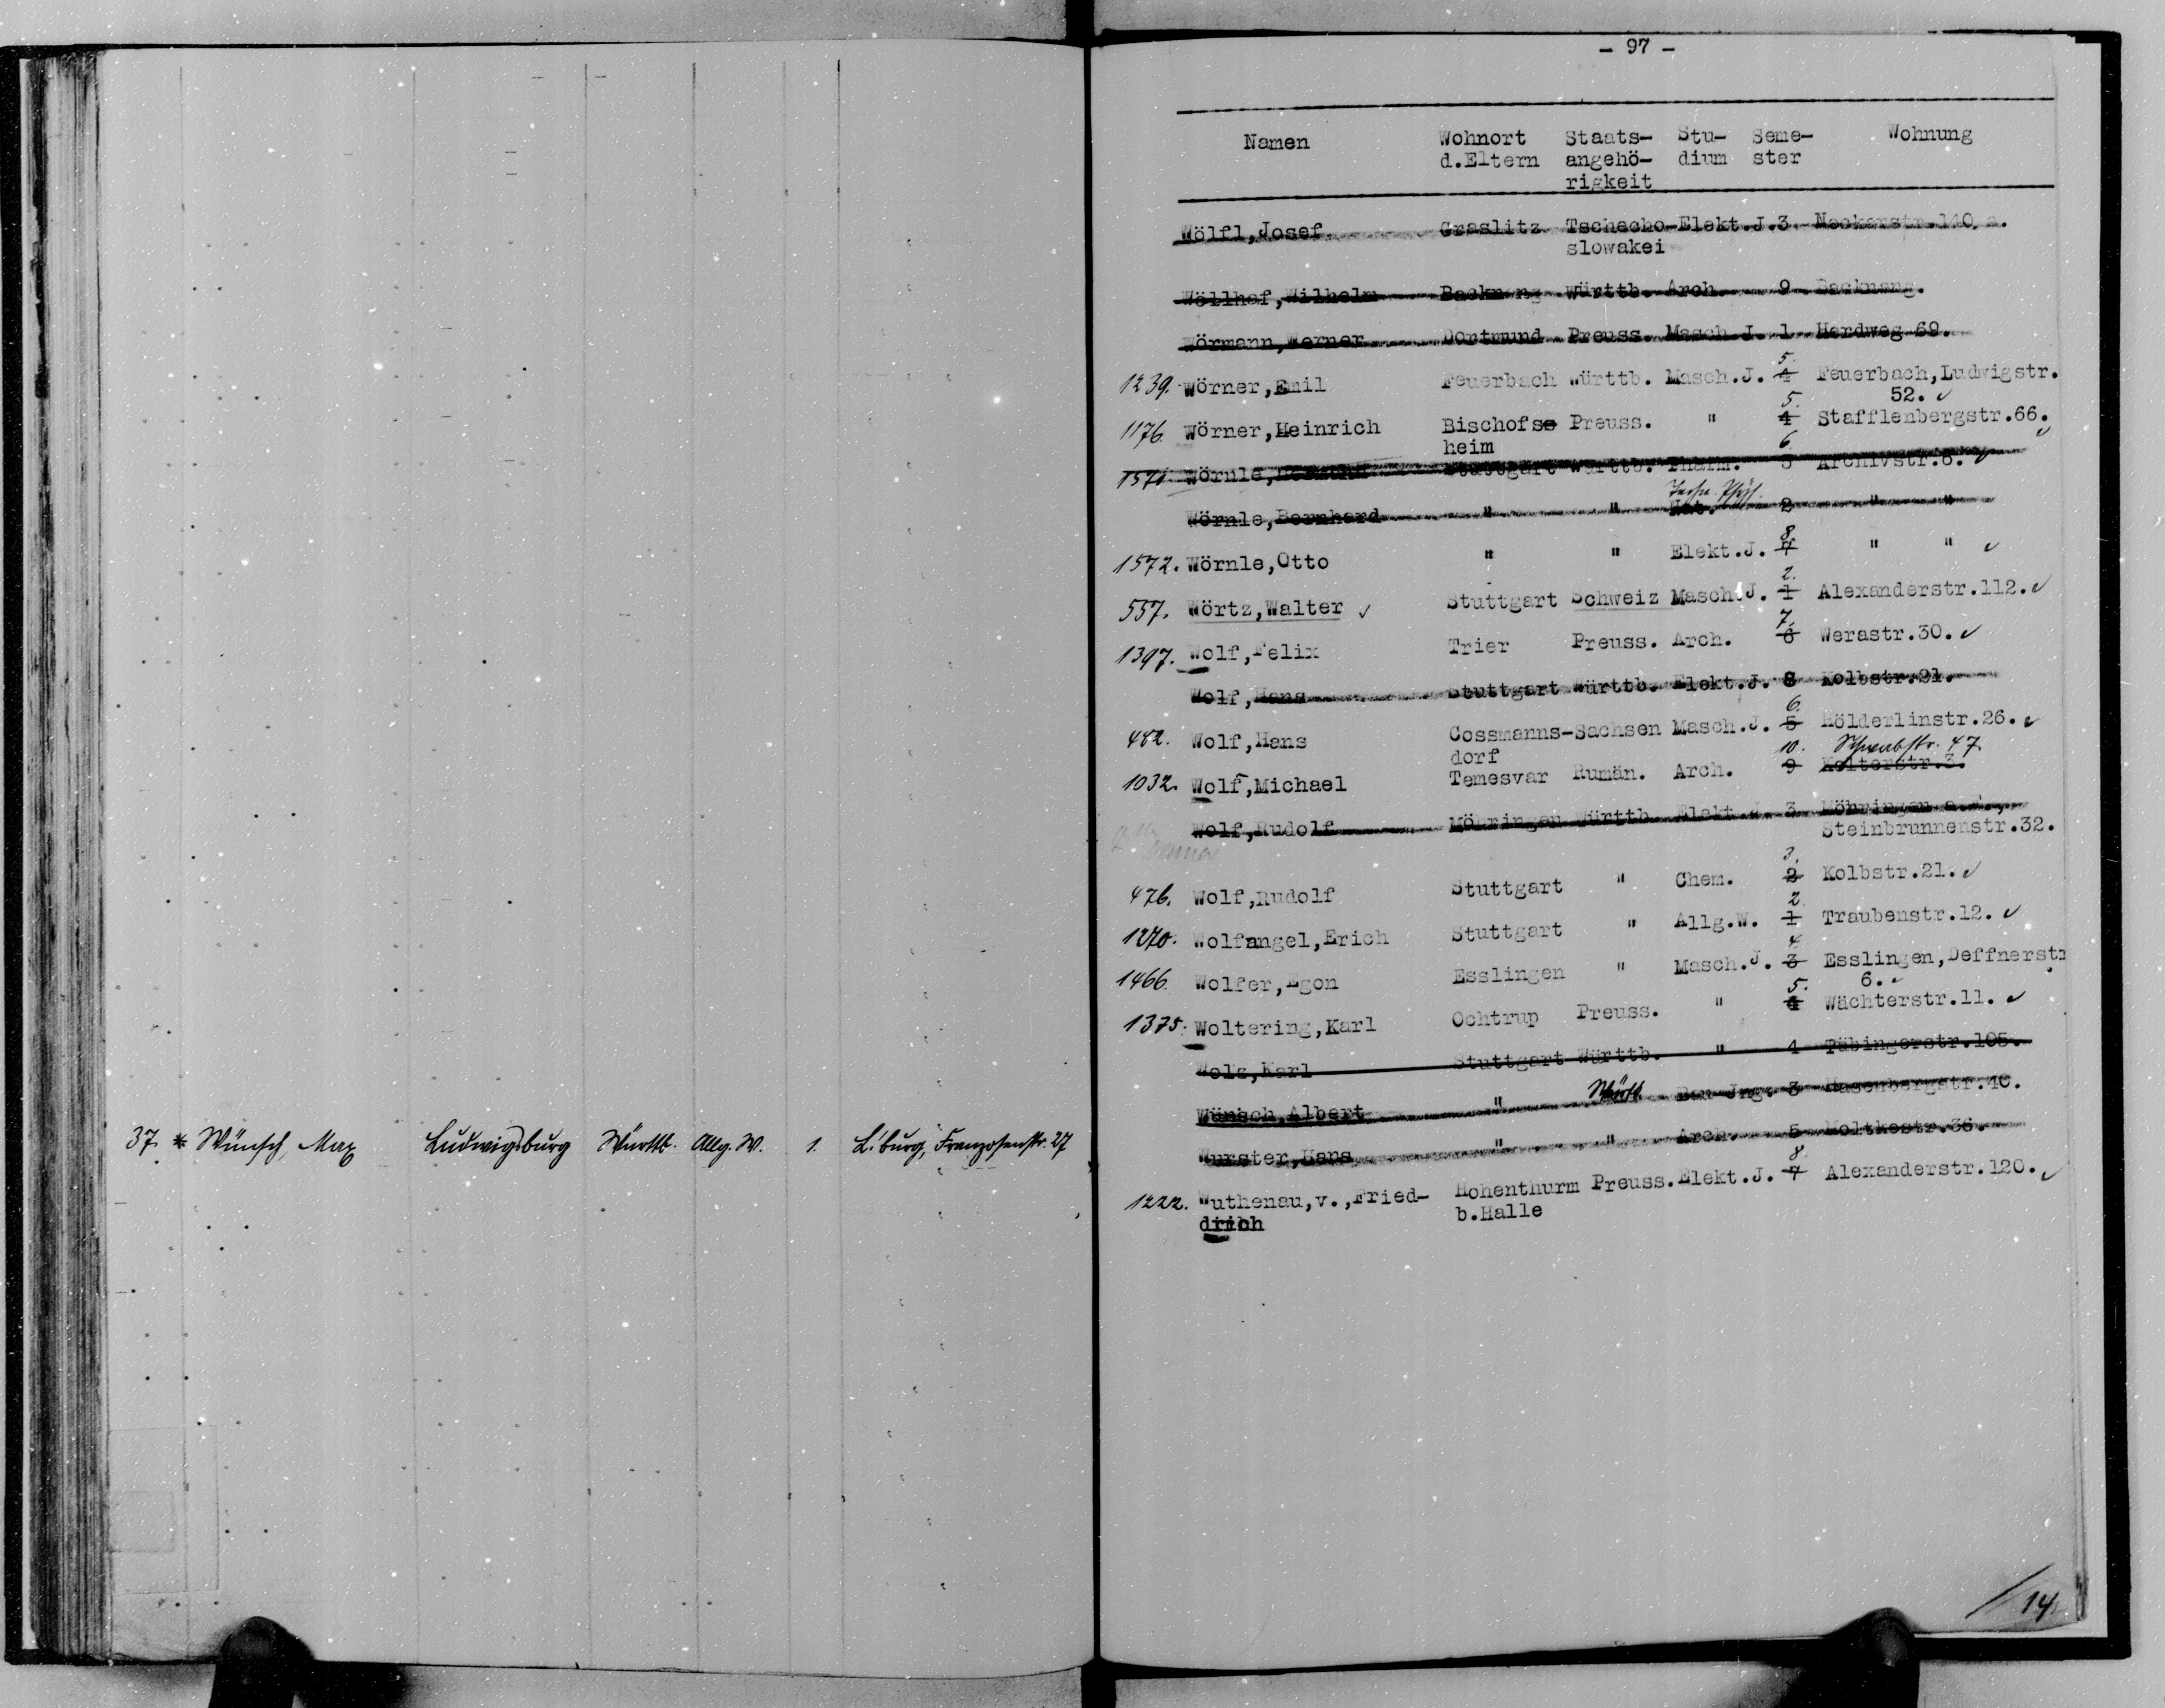 37. * Wünsch, Max Ludwigsburg Württb. Allg. W. 1. L'burg, Franzosenstr. 27
- 97 -
Namen Wohnort Staats- Stu- Seme- Wohnung
d.Eltern angehö- dium ster
rigkeit
Wölfl,Josef Graslitz Tschecho- Elekt.J. 3 Neckarstr.140 a.
slowakei
Wöllhaf,Wilhelm Backnang Württb. Arch. 9 Backnang.
Wörmann,Werner Dortmund Preuss. Masch.J. 1 Herdweg 69.
5.
1239. Wörner,Emil Feuerbach Württb. Masch.J. 4 Feuerbach,Ludwigstr.
5. 52. ✓
1176. Wörner,Heinrich Bischofss Preuss. " 4 Stafflenbergstr.66. ✓
heim 6.
1571. Wörnle, Stuttgart Württb. Pharm. 5 Archivstr.8. ✓
Techn. Phys.
Wörnle,Bernhard " " Nat. 2 " "
8.
1572. Wörnle,Otto " " Elekt.J. 7 " " ✓
2.
557. Wörtz,Walter ✓ Stuttgart Schweiz Masch.J. 1 Alexanderstr.112. ✓
7.
1397. Wolf,Felix Trier Preuss. Arch. 6 Werastr.30. ✓
Wolf,Hans Stuttgart Württb. Elekt.J. 8 Kolbstr.21.
6.
482. Wolf,Hans Cossmanns- Sachsen Masch.J. 5 Hölderlinstr.26. ✓
dorf 10. Schwabstr. 47.
1032. Wolf,Michael Temesvar Rumän. Arch. 9 Kelterstr.3.
Wolf,Rudolf Möhringen Württb. Elekt.J. 3 Möhringen a.F.,
Steinbrunnenstr.32.
3.
476. Wolf,Rudolf Stuttgart " Chem. 2 Kolbstr.21. ✓
2
1270. Wolfangel,Erich Stuttgart " Allg.W. 1 Traubenstr.12. ✓
4.
1466. Wolfer,Egon Esslingen " Masch.J. 3 Esslingen,Deffnerstr
5. 6. ✓
1375. Woltering,Karl Ochtrup Preuss. " 4 Wächterstr.11. ✓
Wolz,Karl Stuttgart Württb. " 4 Tübingerstr.105.
Wünsch,Albert " Württ. Bau-Jng. 3 Hasenbergstr.40.
Wurster,Hans " " Arch. 5 Moltkestr.36.
8.
1222. Wuthenau,v.,Fried- Hohenthurm Preuss. Elekt.J. 7 Alexanderstr.120. ✓
drich b.Halle
/14